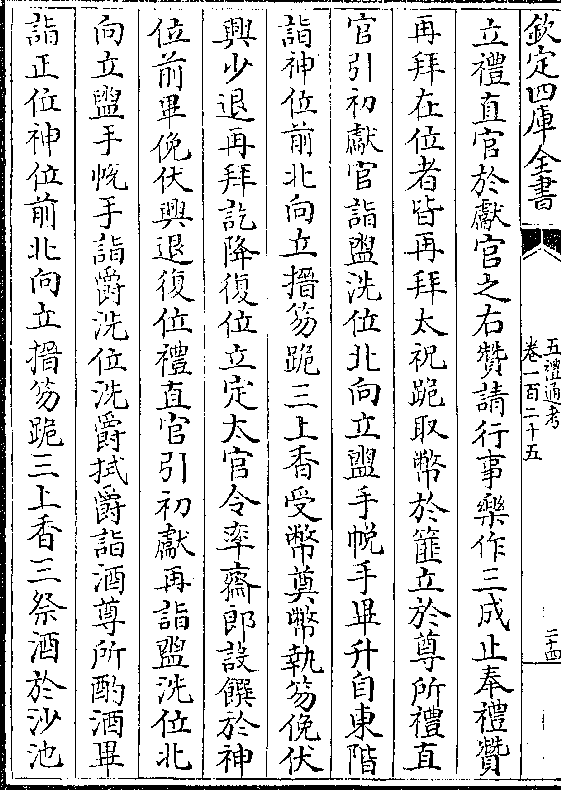 欽定四庫全書
五禮通考
卷一百二十五
二十四
立禮直官於獻官之右贊請行事樂作三成止奉禮贊
再拜在位者皆再拜太祝跪取幣於篚立於尊所禮直
官引初獻官詣盥洗位北向立盥手帨手畢升自東階
詣神位前北向立搢笏跪三上香受幣奠幣執笏俛伏
興少退再拜訖降復位立定太官令率齋郎設饌於神
位前畢俛伏興退復位禮直官引初獻再詣盥洗位北
向立盥手帨手詣爵洗位洗爵拭爵詣酒尊所酌酒畢
詣正位神位前北向立搢笏跪三上香三祭酒於沙池